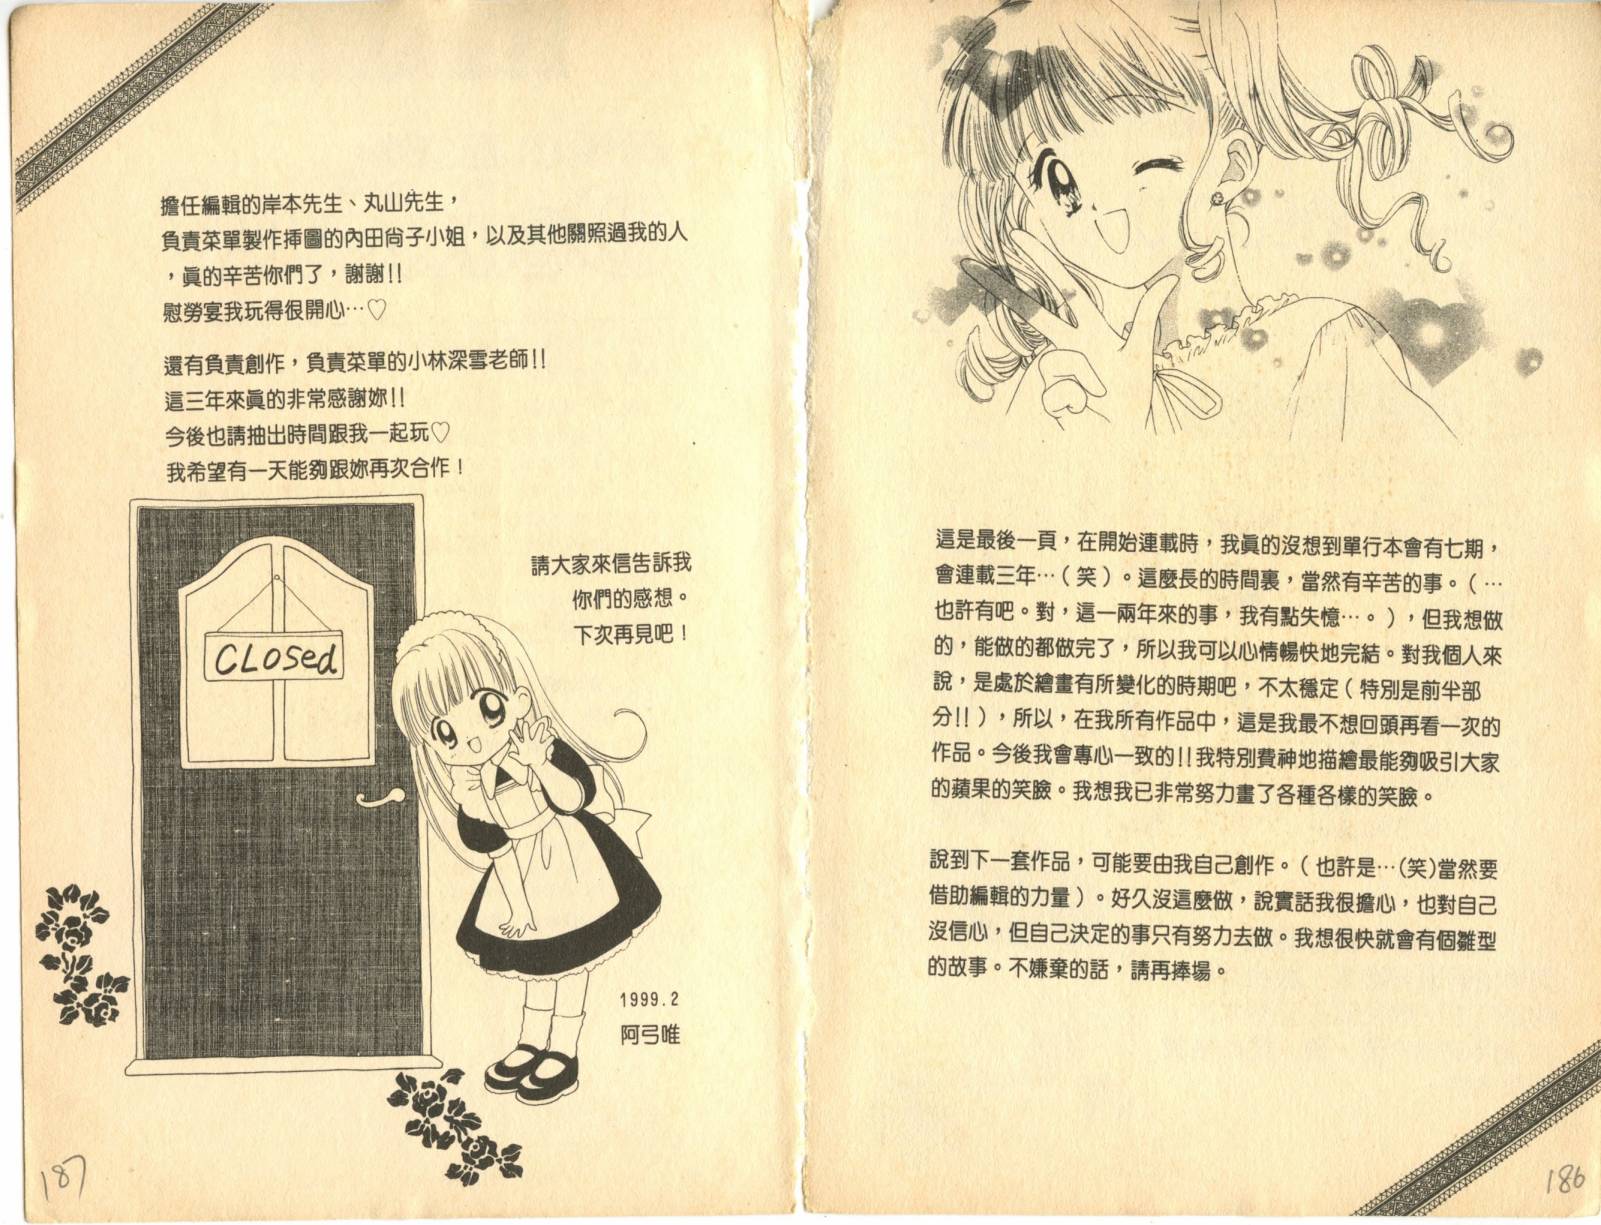 這是最後一頁，在開始連載時，我眞的沒想到單行本會有七期，
會連載三年…（笑）。這麼長的時間裏，當然有辛苦的事。（…
也許有吧。對，這一兩年來的事，我有點失憶…。），但我想做
的，能做的都做完了，所以我可以心情暢快地完結。對我個人來
說，是處於繪畫有所變化的時期吧，不太穩定（特別是前半部
分!!），所以，在我所有作品中，這是我最不想回頭再看一次的
作品。今後我會專心一致的!!我特別費神地描繪最能夠吸引大家
的蘋果的笑臉。我想我已非常努力畫了各種各樣的笑臉。
說到下一套作品，可能要由我自己創作。（也許是…(笑)當然要
借助編輯的力量）。好久沒這麼做，說實話我很擔心，也對自己
沒信心，但自己決定的事只有努力去做。我想很快就會有個雛型
的故事。不嫌棄的話，請再捧場。
186
擔任編輯的岸本先生、丸山先生，
負責菜單製作挿圖的內田尙子小姐，以及其他關照過我的人
，眞的辛苦你們了，謝謝!!
慰勞宴我玩得很開心…♡
還有負責創作，負責菜單的小林深雪老師!!
這三年來眞的非常感謝妳!!
今後也請抽出時間跟我一起玩♡
我希望有一天能夠跟妳再次合作！
請大家來信告訴我
你們的感想。
下次再見吧！
CLOSed
1999.2
阿弓唯
187